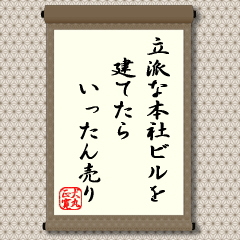 立派な本社ビルを
建てたら
いったん売り